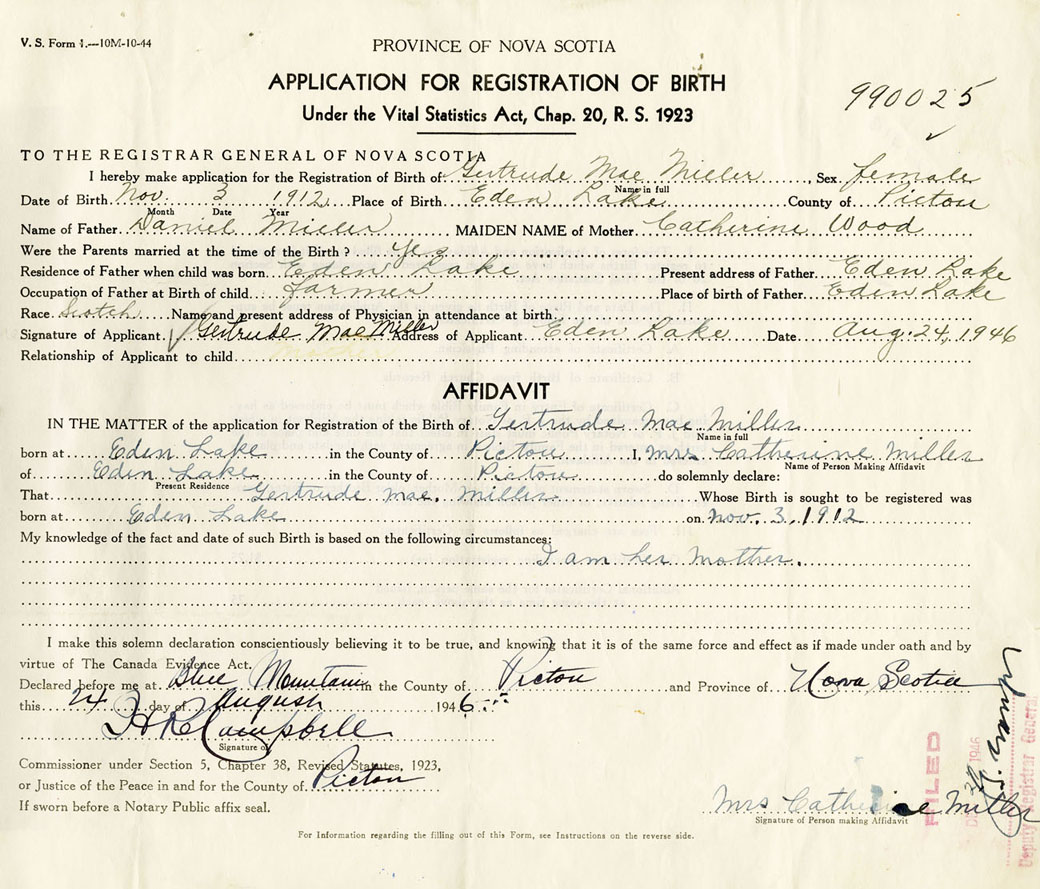 V. S. Form 1.—10M-10-44
PROVINCE OF NOVA SCOTIA
APPLICATION FOR REGISTRATION OF BIRTH
990025
Under the Vital Statistics Act, Chap. 20, R. S. 1923
TO THE REGISTRAR GENERAL OF NOVA SCOTIA
I hereby make application for the Registration of Birth of Gertrude Mae Miller, Sex female
Name in full
Date of Birth Nov. 3 1912 Place of Birth Eden Lake County of Pictou
Month Date Year
Name of Father Daniel Miller MAIDEN NAME of Mother Catherine Wood
Were the Parents married at the time of the Birth? Yes
Residence of Father when child was born Eden Lake Present address of Father Eden Lake
Occupation of Father at Birth of child Farmer Place of birth of Father Eden Lake
Race Scotch Name and present address of Physician in attendance at birth
Signature of Applicant Gertrude Mae Miller Address of Applicant Eden Lake Date Aug. 24, 1946
Relationship of Applicant to child Mother
AFFIDAVIT
IN THE MATTER of the application for Registration of the Birth of Gertrude Mae Miller
Name in full
born at Eden Lake in the County of Pictou I, Mrs Catherine Miller
Name of Person Making Affidavit
of Eden Lake in the County of Pictou do solemnly declare:
Present Residence
That Gertrude Mae. Miller Whose Birth is sought to be registered was
born at Eden Lake on Nov. 3, 1912
My knowledge of the fact and date of such Birth is based on the following circumstances:
I am her mother.
I make this solemn declaration conscientiously believing it to be true, and knowing that it is of the same force and effect as if made under oath and by
virtue of The Canada Evidence Act.
Declared before me at Blue Mountain in the County of Pictou and Province of Nova Scotia
this 24 day of August 1946
Campbell
Signature of
Commissioner under Section 5, Chapter 38, Revised Statutes, 1923,
or Justice of the Peace in and for the County of Pictou
If sworn before a Notary Public affix seal.
Mrs Catherine Miller
Signature of Person making Affidavit
For Information regarding the filling out of this Form, see Instructions on the reverse side.
FILED
1946
Deputy Registrar General